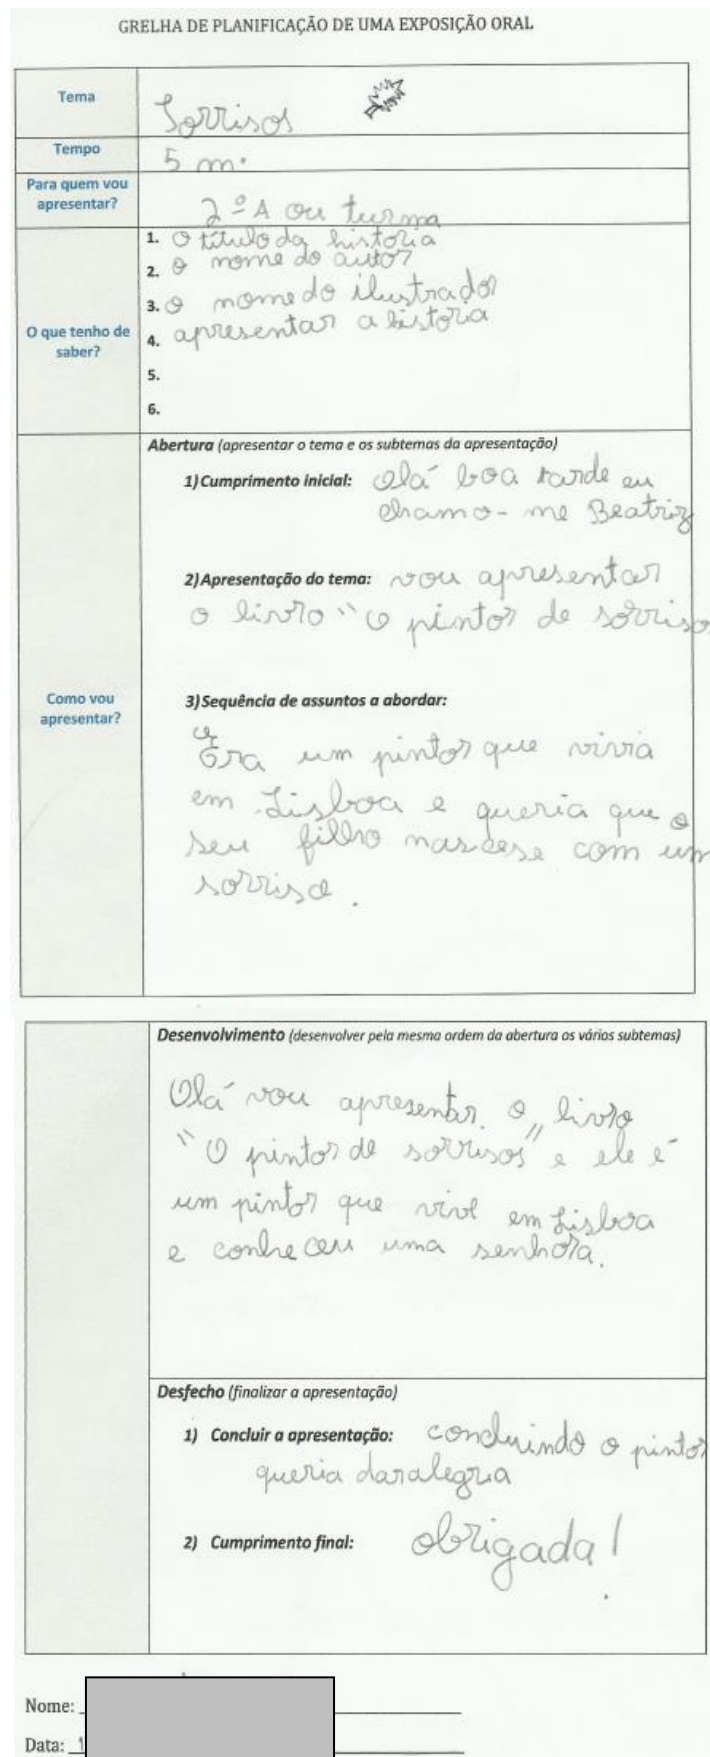 GRELHA DE PLANIFICAÇÃO DE UMA EXPOSIÇÃO ORAL
Tema
Sorrisos
Tempo
5 m.
Para quem vou
apresentar?
2º A ou turma
O que tenho de
saber?
1. O título da história
2. o nome do autor
3. o nome do ilustrador
4. apresentar a história
5.
6.
Como vou
apresentar?
Abertura (apresentar o tema e os subtemas da apresentação)
1) Cumprimento inicial: Olá boa tarde eu
chamo-me Beatriz
2) Apresentação do tema: vou apresentar
o livro "O pintor de sorriso
3) Sequência de assuntos a abordar:
Era um pintor que vivia
em Lisboa e queria que o
seu filho nascese com um
sorriso.
Desenvolvimento (desenvolver pela mesma ordem da abertura os vários subtemas)
Olá vou apresentar o livro
"O pintor de sorrisos" e ele é
um pintor que vive em Lisboa
e conheceu uma senhora.
Desfecho (finalizar a apresentação)
1) Concluir a apresentação: concluindo o pintor
queria dar alegria
2) Cumprimento final: obrigada!
Nome:
Data: 1